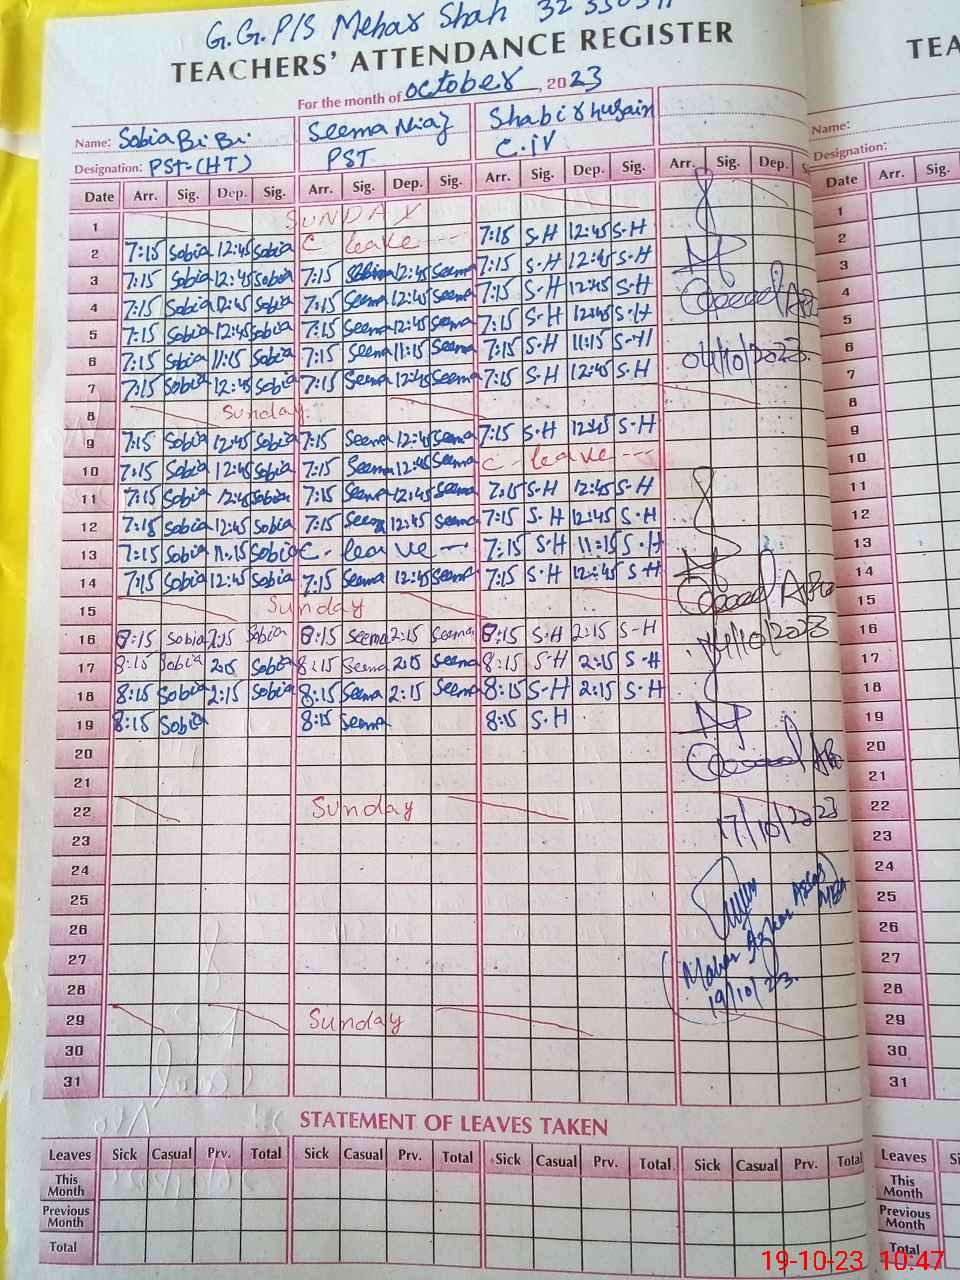 G.G.P/S Mehar Shah
TEACHERS' ATTENDANCE REGISTER TEA
For the month of october, 2023
Name: Sobia Bi Bi Seema Niaz Shabir Husain Name:
Designation: PST-(HT) PST C.iV Designation:
Date Arr. Sig. Dep. Sig. Arr. Sig. Dep. Sig. Arr. Sig. Dep. Sig. Arr. Sig. Dep. Date Arr. Sig.
1 SUNDAY 1
2 7:15 Sobia 12:45 Sobia C leave 7:15 S.H 12:45 S.H 2
3 7:15 Sobia 12:45 Sobia 7:15 12:45 Seema 7:15 S.H 12:45 S.H 3
4 7:15 Sobia 12:45 Sobia 7:15 Seema 12:45 Seema 7:15 S.H 12:45 S.H 4
5 7:15 Sobia 12:45 Sobia 7:15 Seema 12:45 Seema 7:15 S.H 12:45 S.H 5
6 7:15 Sobia 11:15 Sobia 7:15 Seema 11:15 Seema 7:15 S.H 11:15 S.H 04/10/2023 6
7 7:15 Sobia 12:45 Sobia 7:15 Seema 12:45 Seema 7:15 S.H 12:45 S.H 7
8 Sunday 8
9 7:15 Sobia 12:45 Sobia 7:15 Seema 12:45 Seema 7:15 S.H 12:45 S.H 9
10 7:15 Sobia 12:45 Sobia 7:15 Seema 12:45 Seema C-leave -- 10
11 7:15 Sobia 12:45 Sobia 7:15 Seema 12:45 Seema 7:15 S.H 12:45 S.H 11
12 7:15 Sobia 12:45 Sobia 7:15 Seema 12:45 Seema 7:15 S.H 12:45 S.H 12
13 7:15 Sobia 11:15 Sobia C-leave -- 7:15 S.H 11:15 S.H 13
14 7:15 Sobia 12:45 Sobia 7:15 Seema 12:45 Seema 7:15 S.H 12:45 S.H 14
15 Sunday 15
16 8:15 Sobia 2:15 Sobia 8:15 Seema 2:15 Seema 8:15 S.H 2:15 S-H /10/2023 16
17 8:15 Sobia 2:15 Sobia 8:15 Seema 2:15 Seema 8:15 S-H 2:15 S.H 17
18 8:15 Sobia 2:15 Sobia 8:15 Seema 2:15 Seema 8:15 S-H 2:15 S.H 18
19 8:15 Sobia 8:15 Seema 8:15 S.H 19
20 20
21 21
22 Sunday 22
23 17/10/2023 23
24 24
25 25
26 26
27 Mahar Azhar Abbas MEA 27
28 19/10/23 28
29 Sunday 29
30 30
31 31
STATEMENT OF LEAVES TAKEN
Leaves Sick Casual Prv. Total Sick Casual Prv. Total Sick Casual Prv. Total Sick Casual Prv. Total Leaves
This Month This Month
Previous Month Previous Month
Total Total
19-10-23 10:47